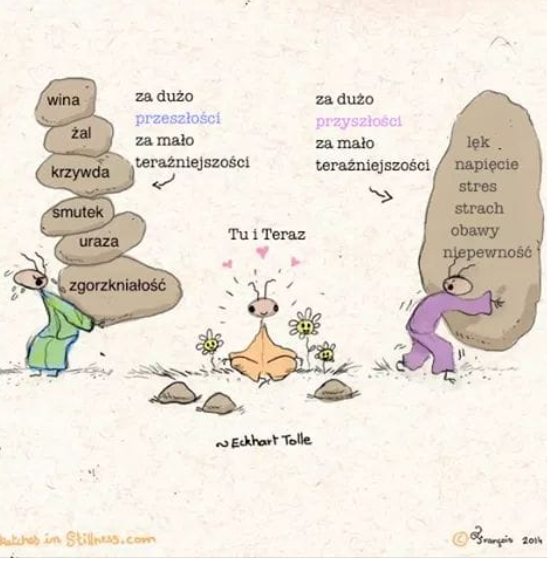 wina
żal
krzywda
smutek
uraza
zgorzkniałość
za dużo
przeszłości
za mało
teraźniejszości
Tu i Teraz
za dużo
przyszłości
za mało
teraźniejszości
lęk
napięcie
stres
strach
obawy
niepewność
~Eckhart Tolle
in Stillness.com
© François 2014